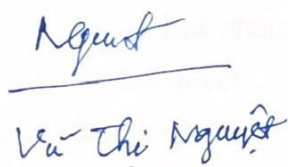 Nguyệt
Vũ Thị Nguyệt